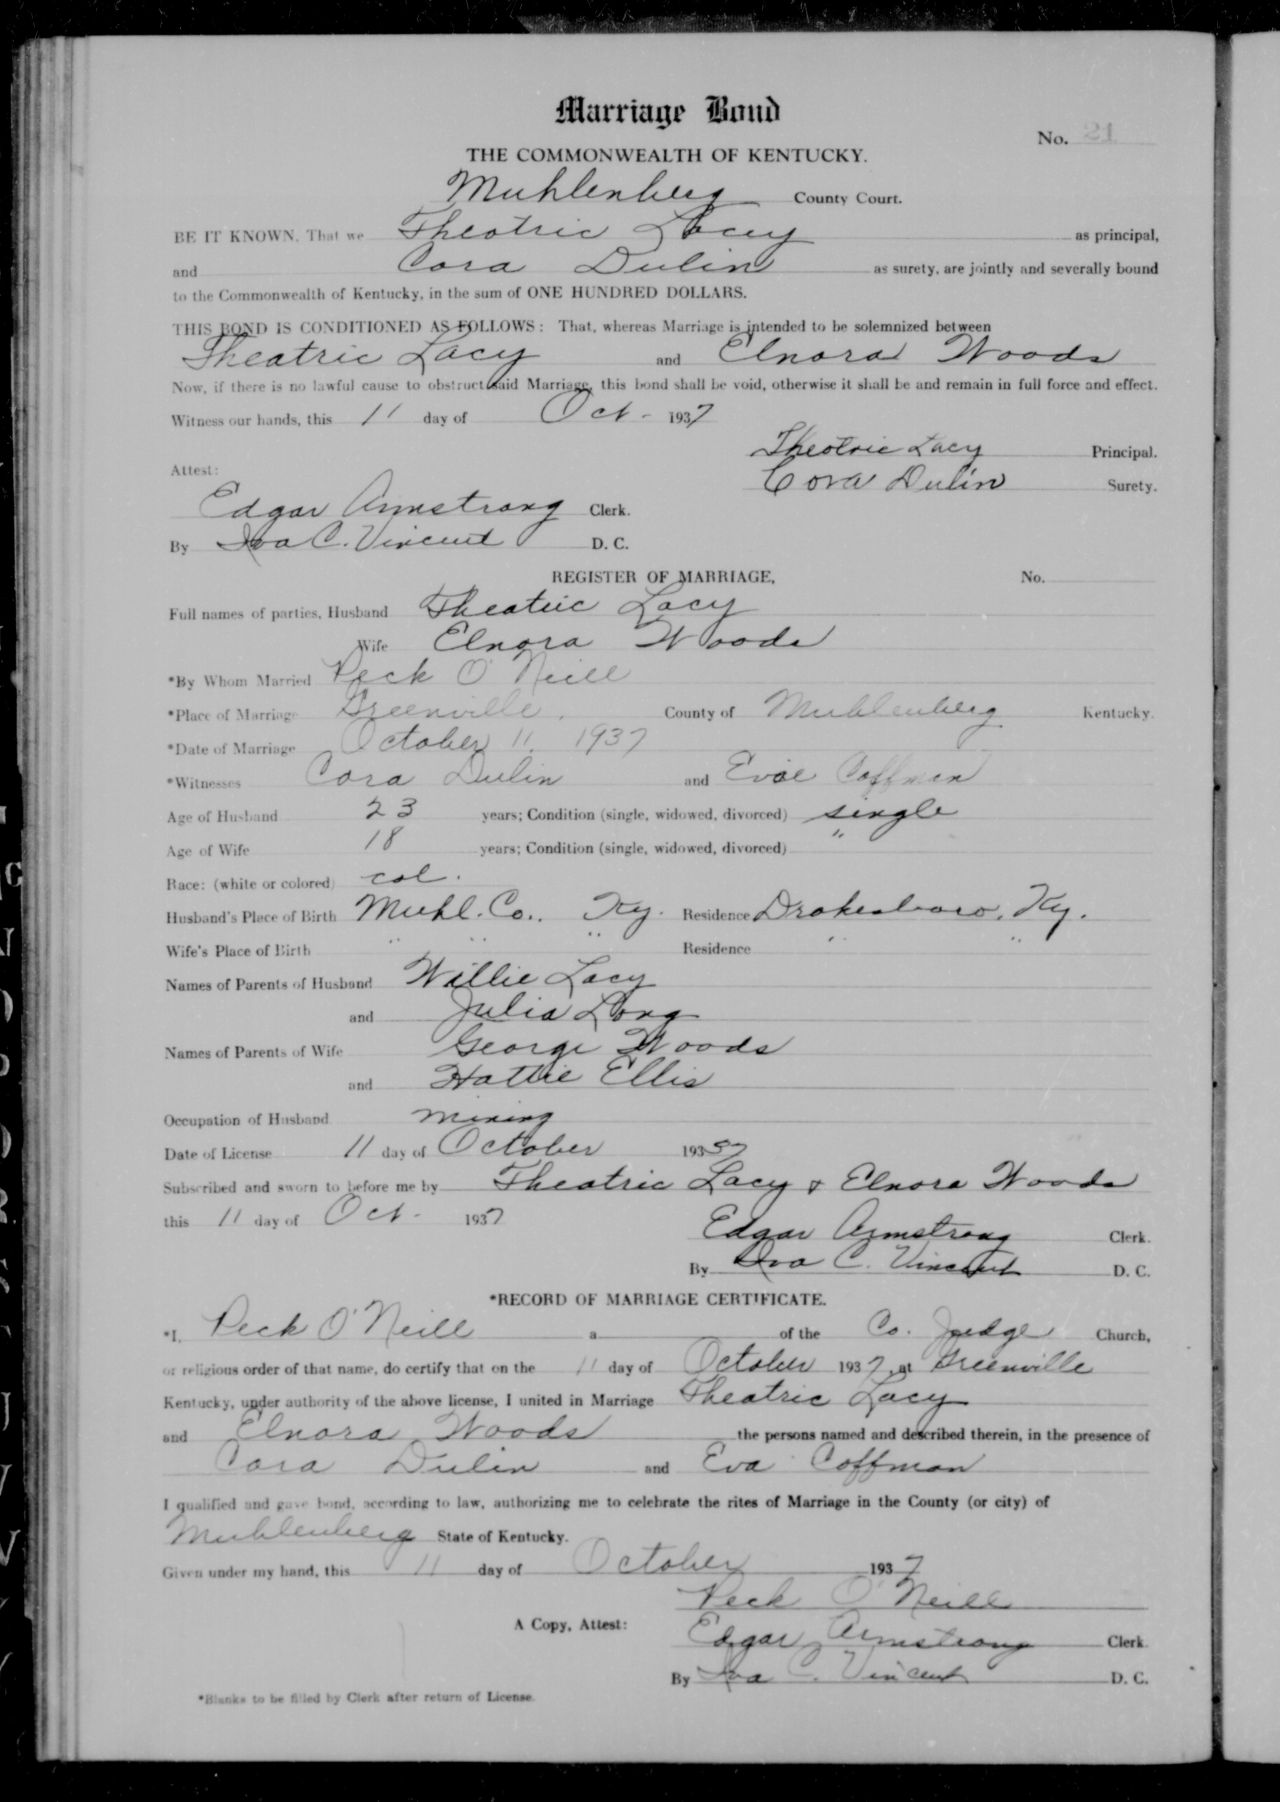 Marriage Bond
No. 21
THE COMMONWEALTH OF KENTUCKY.
Muhlenberg County Court.
BE IT KNOWN, That we Theotric Lacy as principal,
and Cora Dulin as surety, are jointly and severally bound
to the Commonwealth of Kentucky, in the sum of ONE HUNDRED DOLLARS.
THIS BOND IS CONDITIONED AS FOLLOWS: That, whereas Marriage is intended to be solemnized between
Theatric Lacy and Elnora Woods
Now, if there is no lawful cause to obstruct said Marriage, this bond shall be void, otherwise it shall be and remain in full force and effect.
Witness our hands, this 11 day of Oct - 1937
Theotric Lacy Principal.
Attest:
Cora Dulin Surety.
Edgar Armstrong Clerk.
By Iva C. Vincent D. C.
REGISTER OF MARRIAGE, No.
Full names of parties, Husband Theatric Lacy
Wife Elnora Woods
*By Whom Married Peck O'Neill
*Place of Marriage Greenville, County of Muhlenberg Kentucky.
*Date of Marriage October 11, 1937
*Witnesses Cora Dulin and Evae Coffman
Age of Husband 23 years; Condition (single, widowed, divorced) single
Age of Wife 18 years; Condition (single, widowed, divorced) "
Race: (white or colored) col.
Husband's Place of Birth Muhl. Co., Ky. Residence Drakesboro, Ky.
Wife's Place of Birth " " " Residence " "
Names of Parents of Husband Willie Lacy
and Julia Long
Names of Parents of Wife George Woods
and Hattie Ellis
Occupation of Husband mining
Date of License 11 day of October 19337
Subscribed and sworn to before me by Theatric Lacy & Elnora Woods
this 11 day of Oct - 1937
Edgar Armstrong Clerk.
By Iva C. Vincent D. C.
*RECORD OF MARRIAGE CERTIFICATE.
*I, Peck O'Neill a of the Co. Judge Church,
or religious order of that name, do certify that on the 11 day of October 1937, at Greenville
Kentucky, under authority of the above license, I united in Marriage Theatric Lacy
and Elnora Woods the persons named and described therein, in the presence of
Cora Dulin and Eva Coffman
I qualified and gave bond, according to law, authorizing me to celebrate the rites of Marriage in the County (or city) of
Muhlenberg State of Kentucky.
Given under my hand, this 11 day of October 1937
Peck O'Neill
A Copy, Attest:
Edgar Armstrong Clerk
By Iva C. Vincent D. C.
*Blanks to be filled by Clerk after return of License.